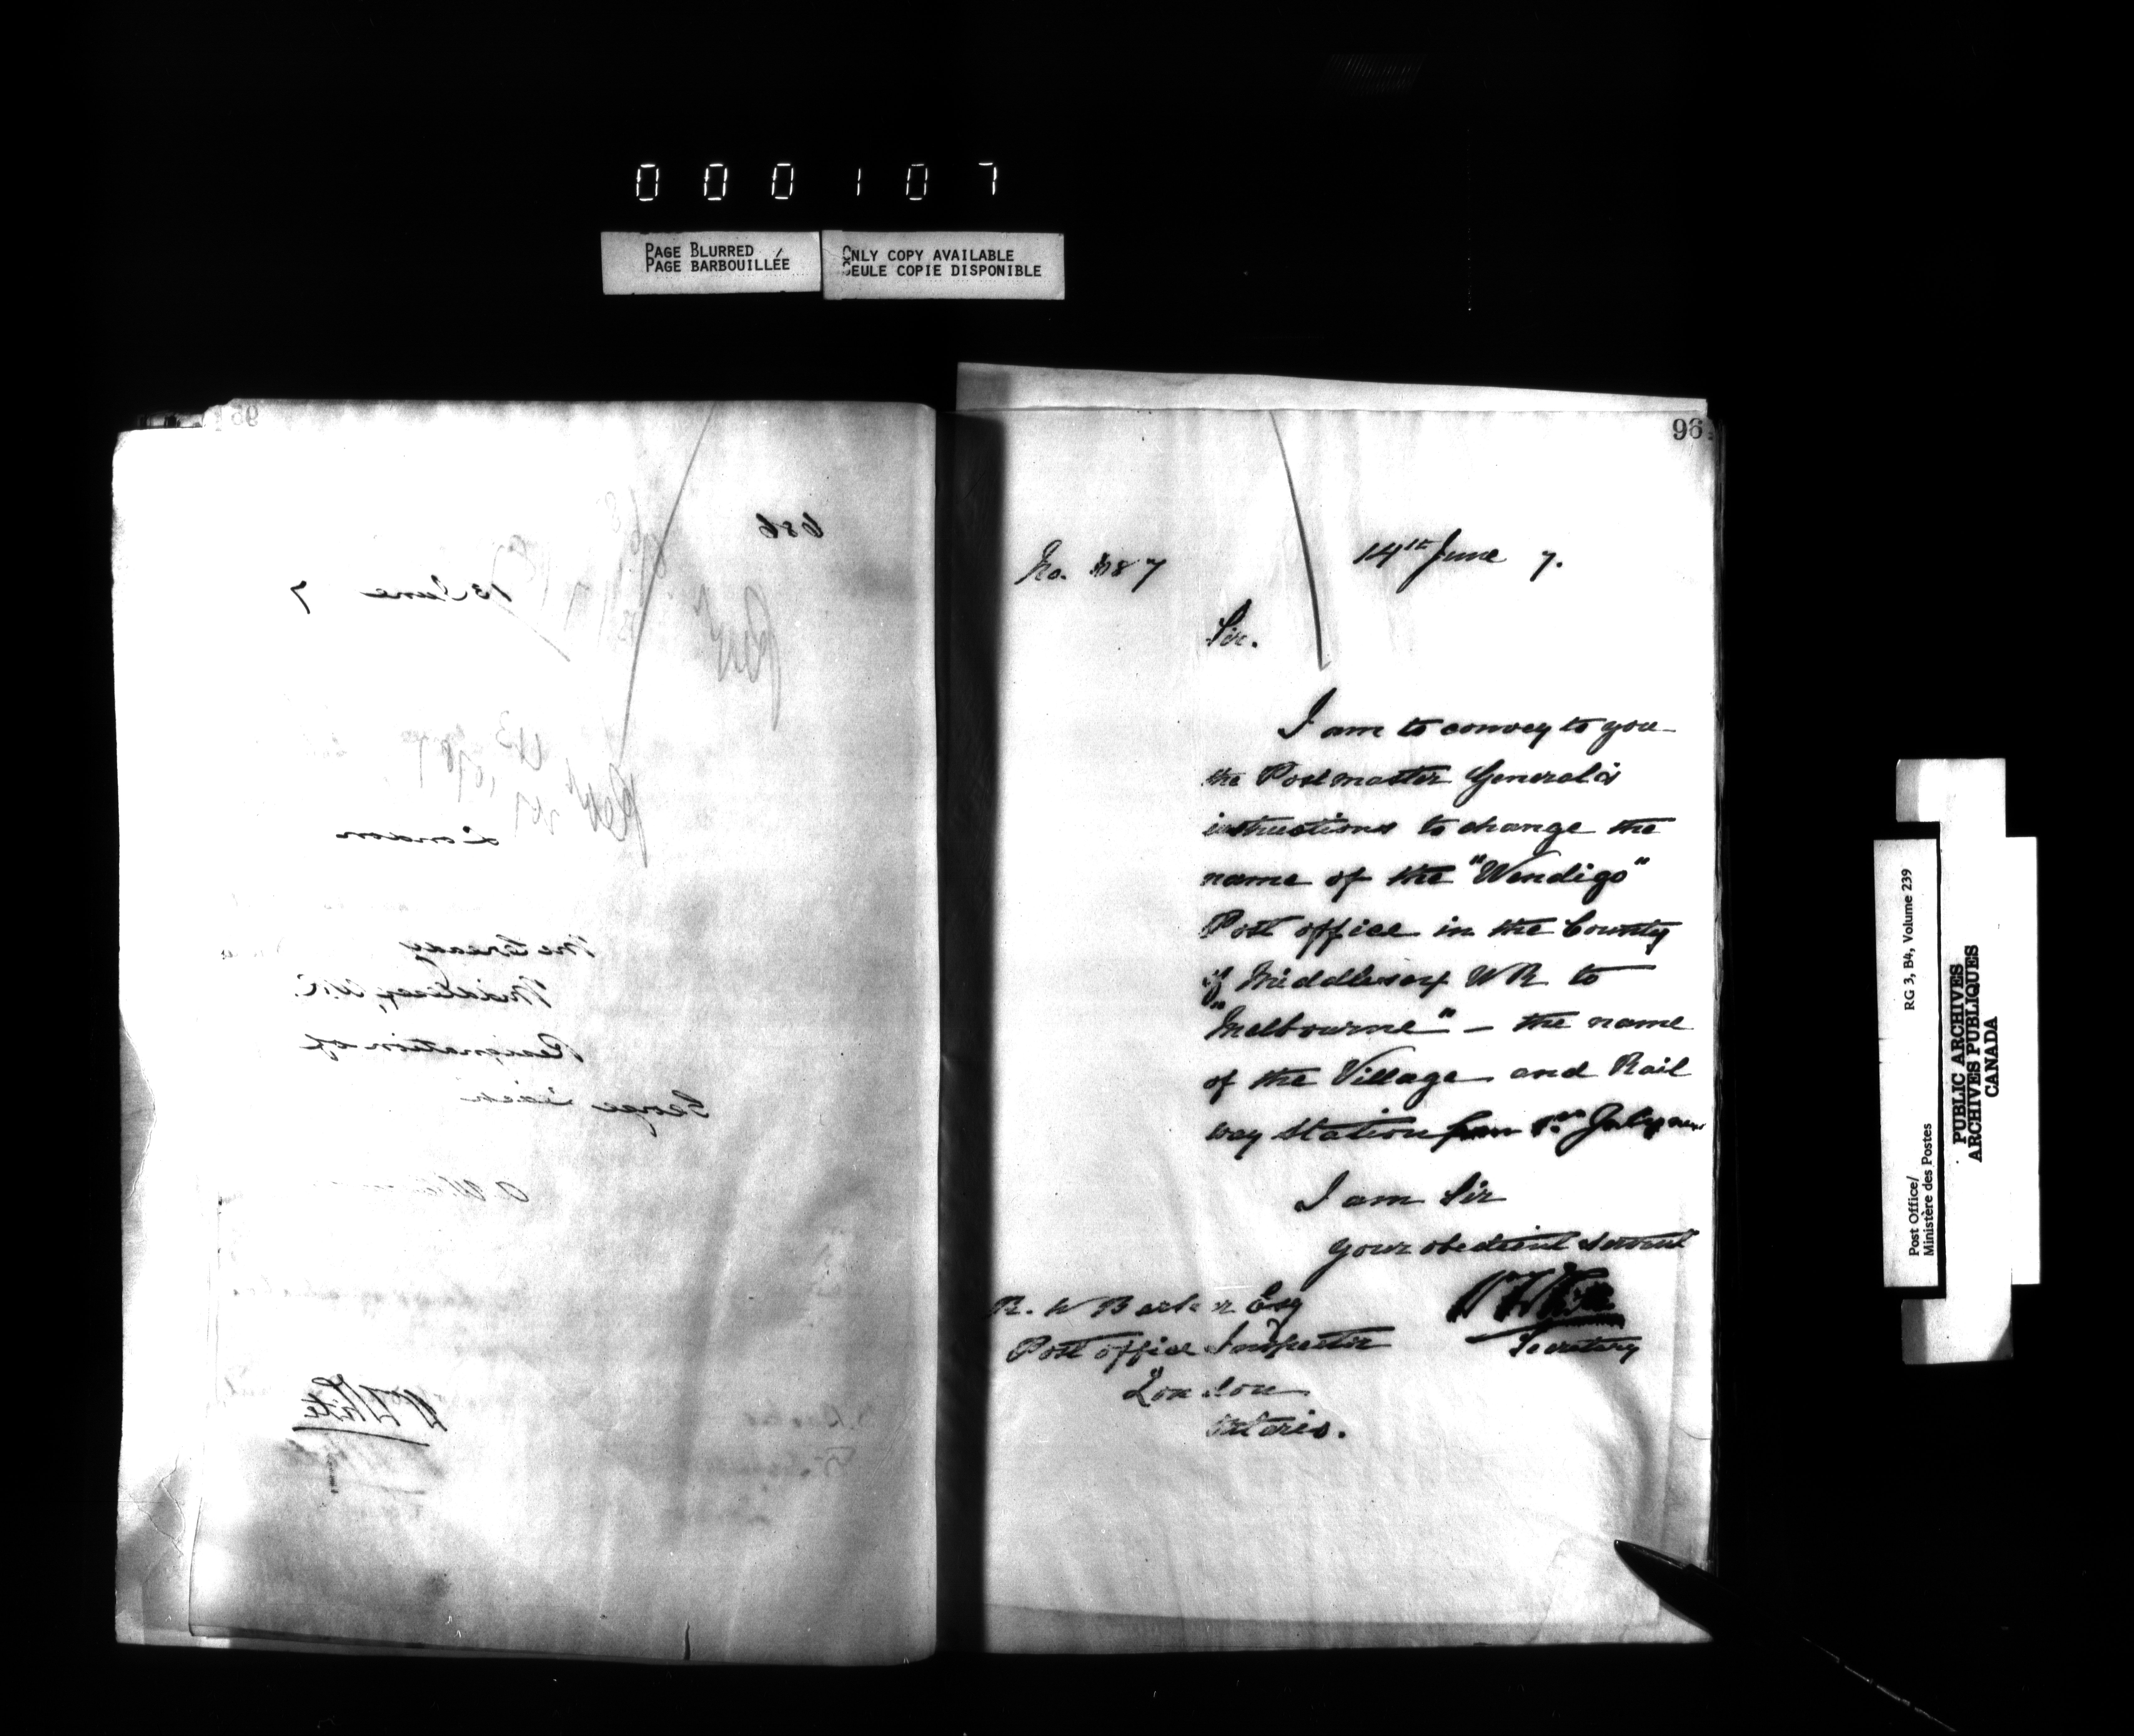 000107
PAGE BLURRED
PAGE BARBOUILLÉE
ONLY COPY AVAILABLE
SEULE COPIE DISPONIBLE
95
686
13 June 7
London
McCready
Middlesex, W.R.
Resignation of
George
Wm White
96
No. 687
14th June 7.
Sir.
I am to convey to you
the Postmaster General's
instructions to change the
name of the "Wendigo"
Post office in the County
of Middlesex WR to
"Melbourne" – the name
of the Village and Rail
way Station from 1st July
I am Sir
your obedient servant
Wm White
Secretary
R. W Barker Esq
Post office Inspector
London
Ontario.
Post Office/
Ministère des Postes
RG 3, B4, Volume 239
PUBLIC ARCHIVES
ARCHIVES PUBLIQUES
CANADA